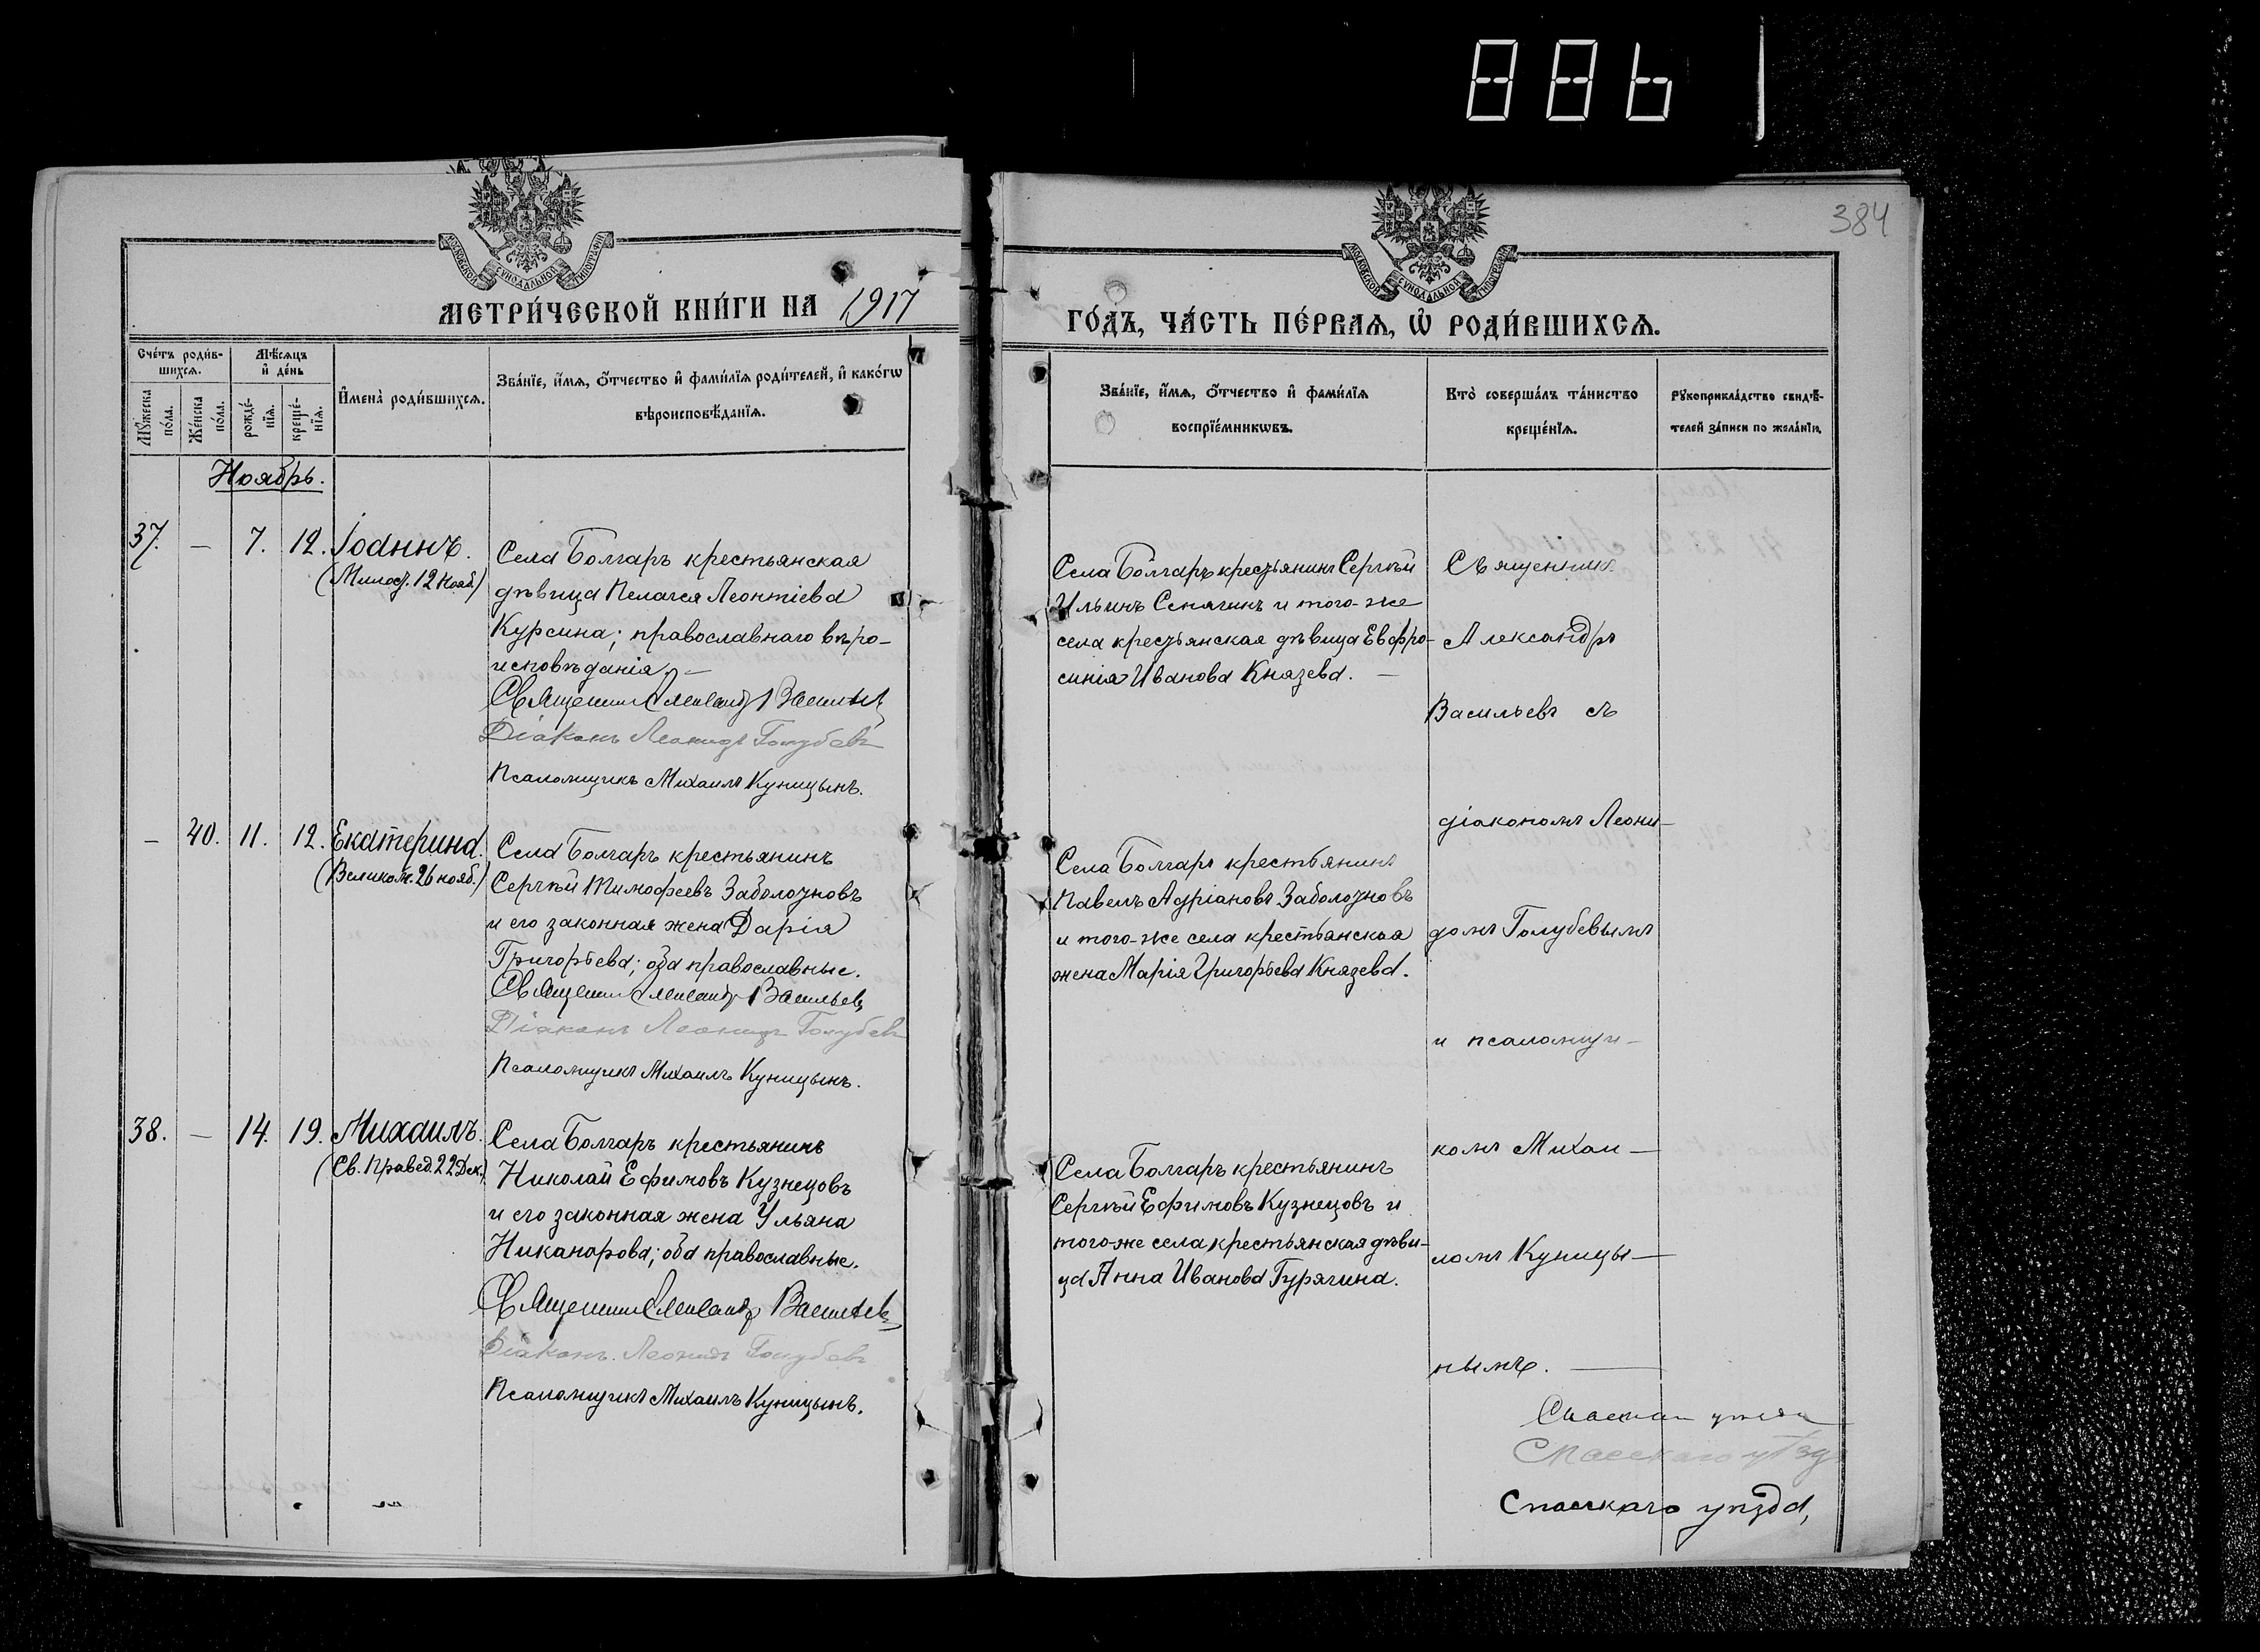 886
384
МОСКОВСКОЙ СУНОДАЛЬНОЙ ТИПОГРАФІИ
МОСКОВСКОЙ СУНОДАЛЬНОЙ ТИПОГРАФІИ
МЕТРИ́ЧЕСКОЙ КНИ́ГИ НА 1917
ГО́ДЪ, ЧА́СТЬ ПЕ́РВАЯ, Ѡ҆ РОДИ́ВШИХСѦ.
Сче́тъ роди́в-
шихсѧ.
Мꙋ́жеска
по́ла.
Же́нска
по́ла.
Мѣ́сѧцъ
и҆ де́нь
рожде́-
нїѧ.
креще́-
нїѧ.
И҆мена̀ роди́вшихсѧ.
Зва́нїе, и҆́мѧ, ѻ҆́тчество и҆ фами́лїѧ роди́телей, и҆ како́гѡ
вѣроисповѣ́данїѧ.
Зва́нїе, и҆́мѧ, ѻ҆́тчество и҆ фами́лїѧ
воспрїе́мникѡвъ.
Кто̀ соверша́лъ та́инство
креще́нїѧ.
Рꙋкоприкла́дство свидѣ́-
телей за́писи по жела́нїю.
Ноябрь.
37. — 7. 12. Іоаннъ.
(Милост. 12 нояб.)
Села Болгаръ крестьянская
дѣвица Пелагея Леонтіева
Курсина; православнаго вѣро-
исповѣданія. —
Священникъ Александръ Васильевъ
Діаконъ Леонидъ Голубевъ
Псаломщикъ Михаилъ Куницынъ.
Села Болгаръ крестьянинъ Сергѣй
Ильинъ Сенягинъ и того-же
села крестьянская дѣвица Евфро-
синія Иванова Князева. —
— 40. 11. 12. Екатерина.
(Великом. 26 нояб.)
Села Болгаръ крестьянинъ
Сергѣй Тимофеевъ Заболозновъ
и его законная жена Дарія
Григорьева; оба православные.
Священникъ Александръ Васильевъ
Діаконъ Леонидъ Голубевъ
Псаломщикъ Михаилъ Куницынъ.
Села Болгаръ крестьянинъ
Павелъ Адріановъ Заболозновъ
и того-же села крестьянская
жена Марія Григорьева Князева.
38. — 14. 19. Михаилъ.
(Св. Правед. 22 Дек.)
Села Болгаръ крестьянинъ
Николай Ефимовъ Кузнецовъ
и его законная жена Ульяна
Никанорова; оба православные.
Священникъ Александръ Васильевъ
Діаконъ Леонидъ Голубевъ
Псаломщикъ Михаилъ Куницынъ.
Села Болгаръ крестьянинъ
Сергѣй Ефимовъ Кузнецовъ и
того-же села крестьянская дѣви-
ца Анна Иванова Гурягина.
Священникъ
Александръ
Васильевъ съ
діакономъ Леони-
домъ Голубевымъ
и псаломщи-
комъ Михаи-
ломъ Куницы-
нымъ. —
Спасскаго уѣзда
Спасскаго уѣзд
Спасскаго уѣзда,